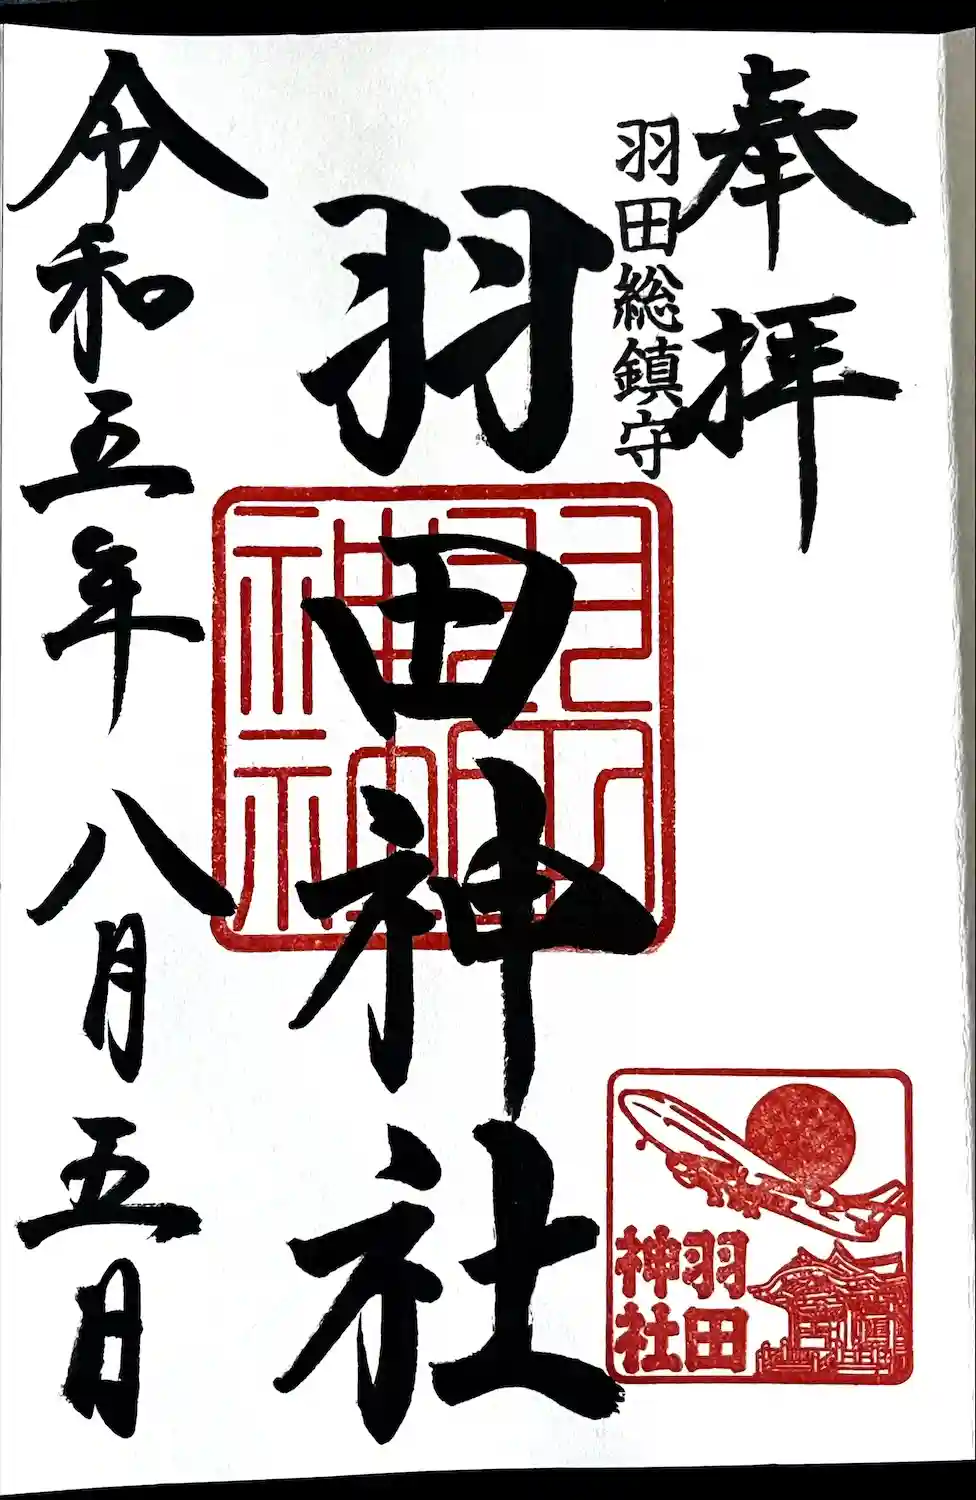 奉拝
羽田総鎮守
羽田神社
令和五年 八月五日
羽田
神社